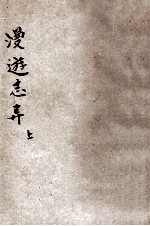 漫遊志弄上